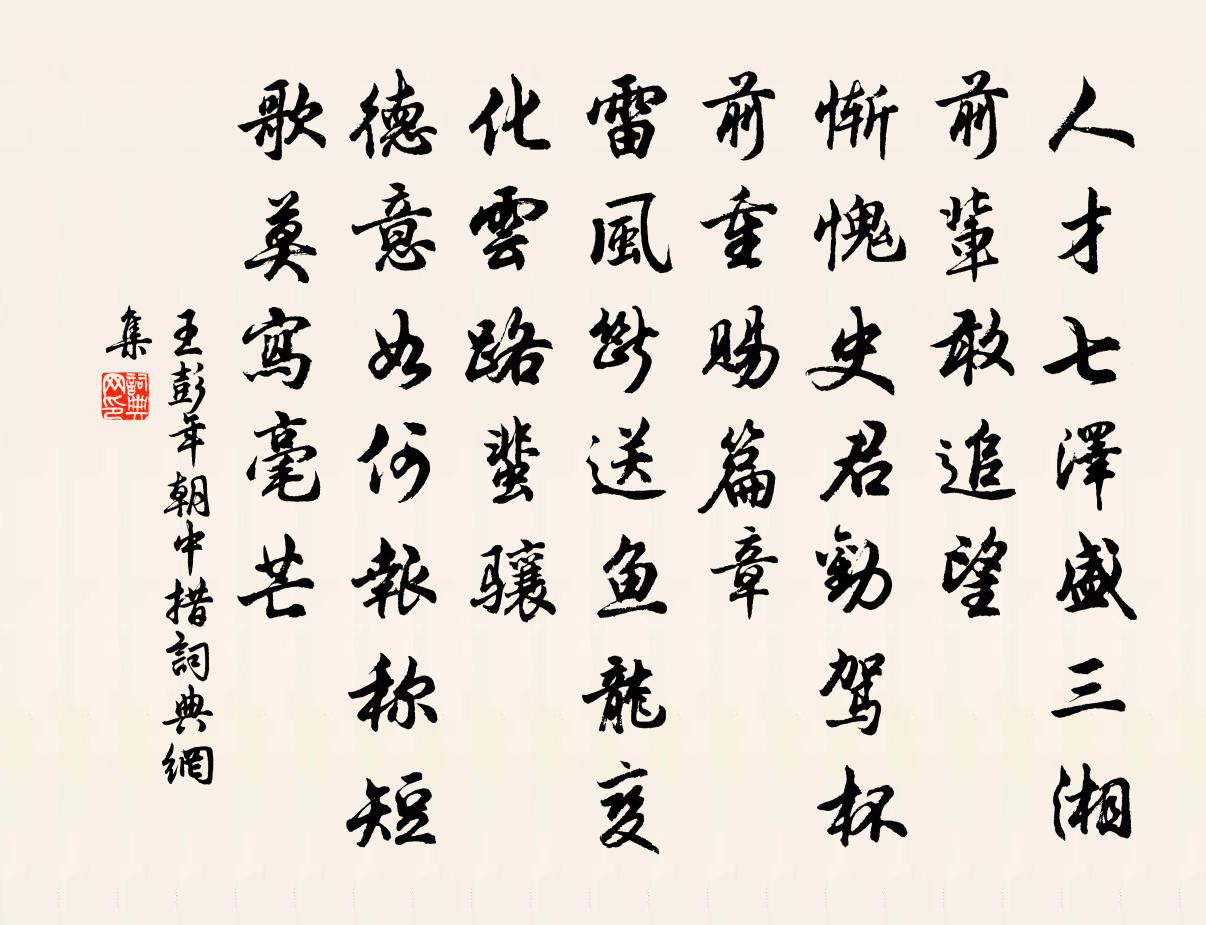 人才七澤盛三湘
前輩敢追望
慚愧史君勸駕杯
前重賜篇章
雷風斷送魚龍變
化雲路蜚驤
德意如何報称短
歌莫寫毫芒
王彭年朝中措詞典網
集
詞典網印